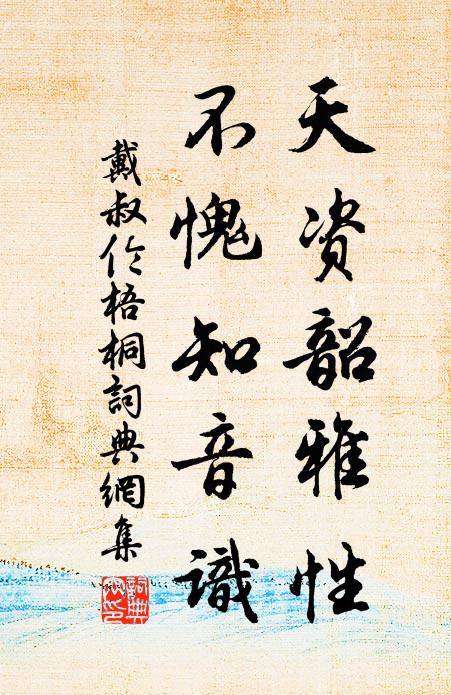 天資韶雅性
不愧知音識
戴叔伦梧桐詞典網集